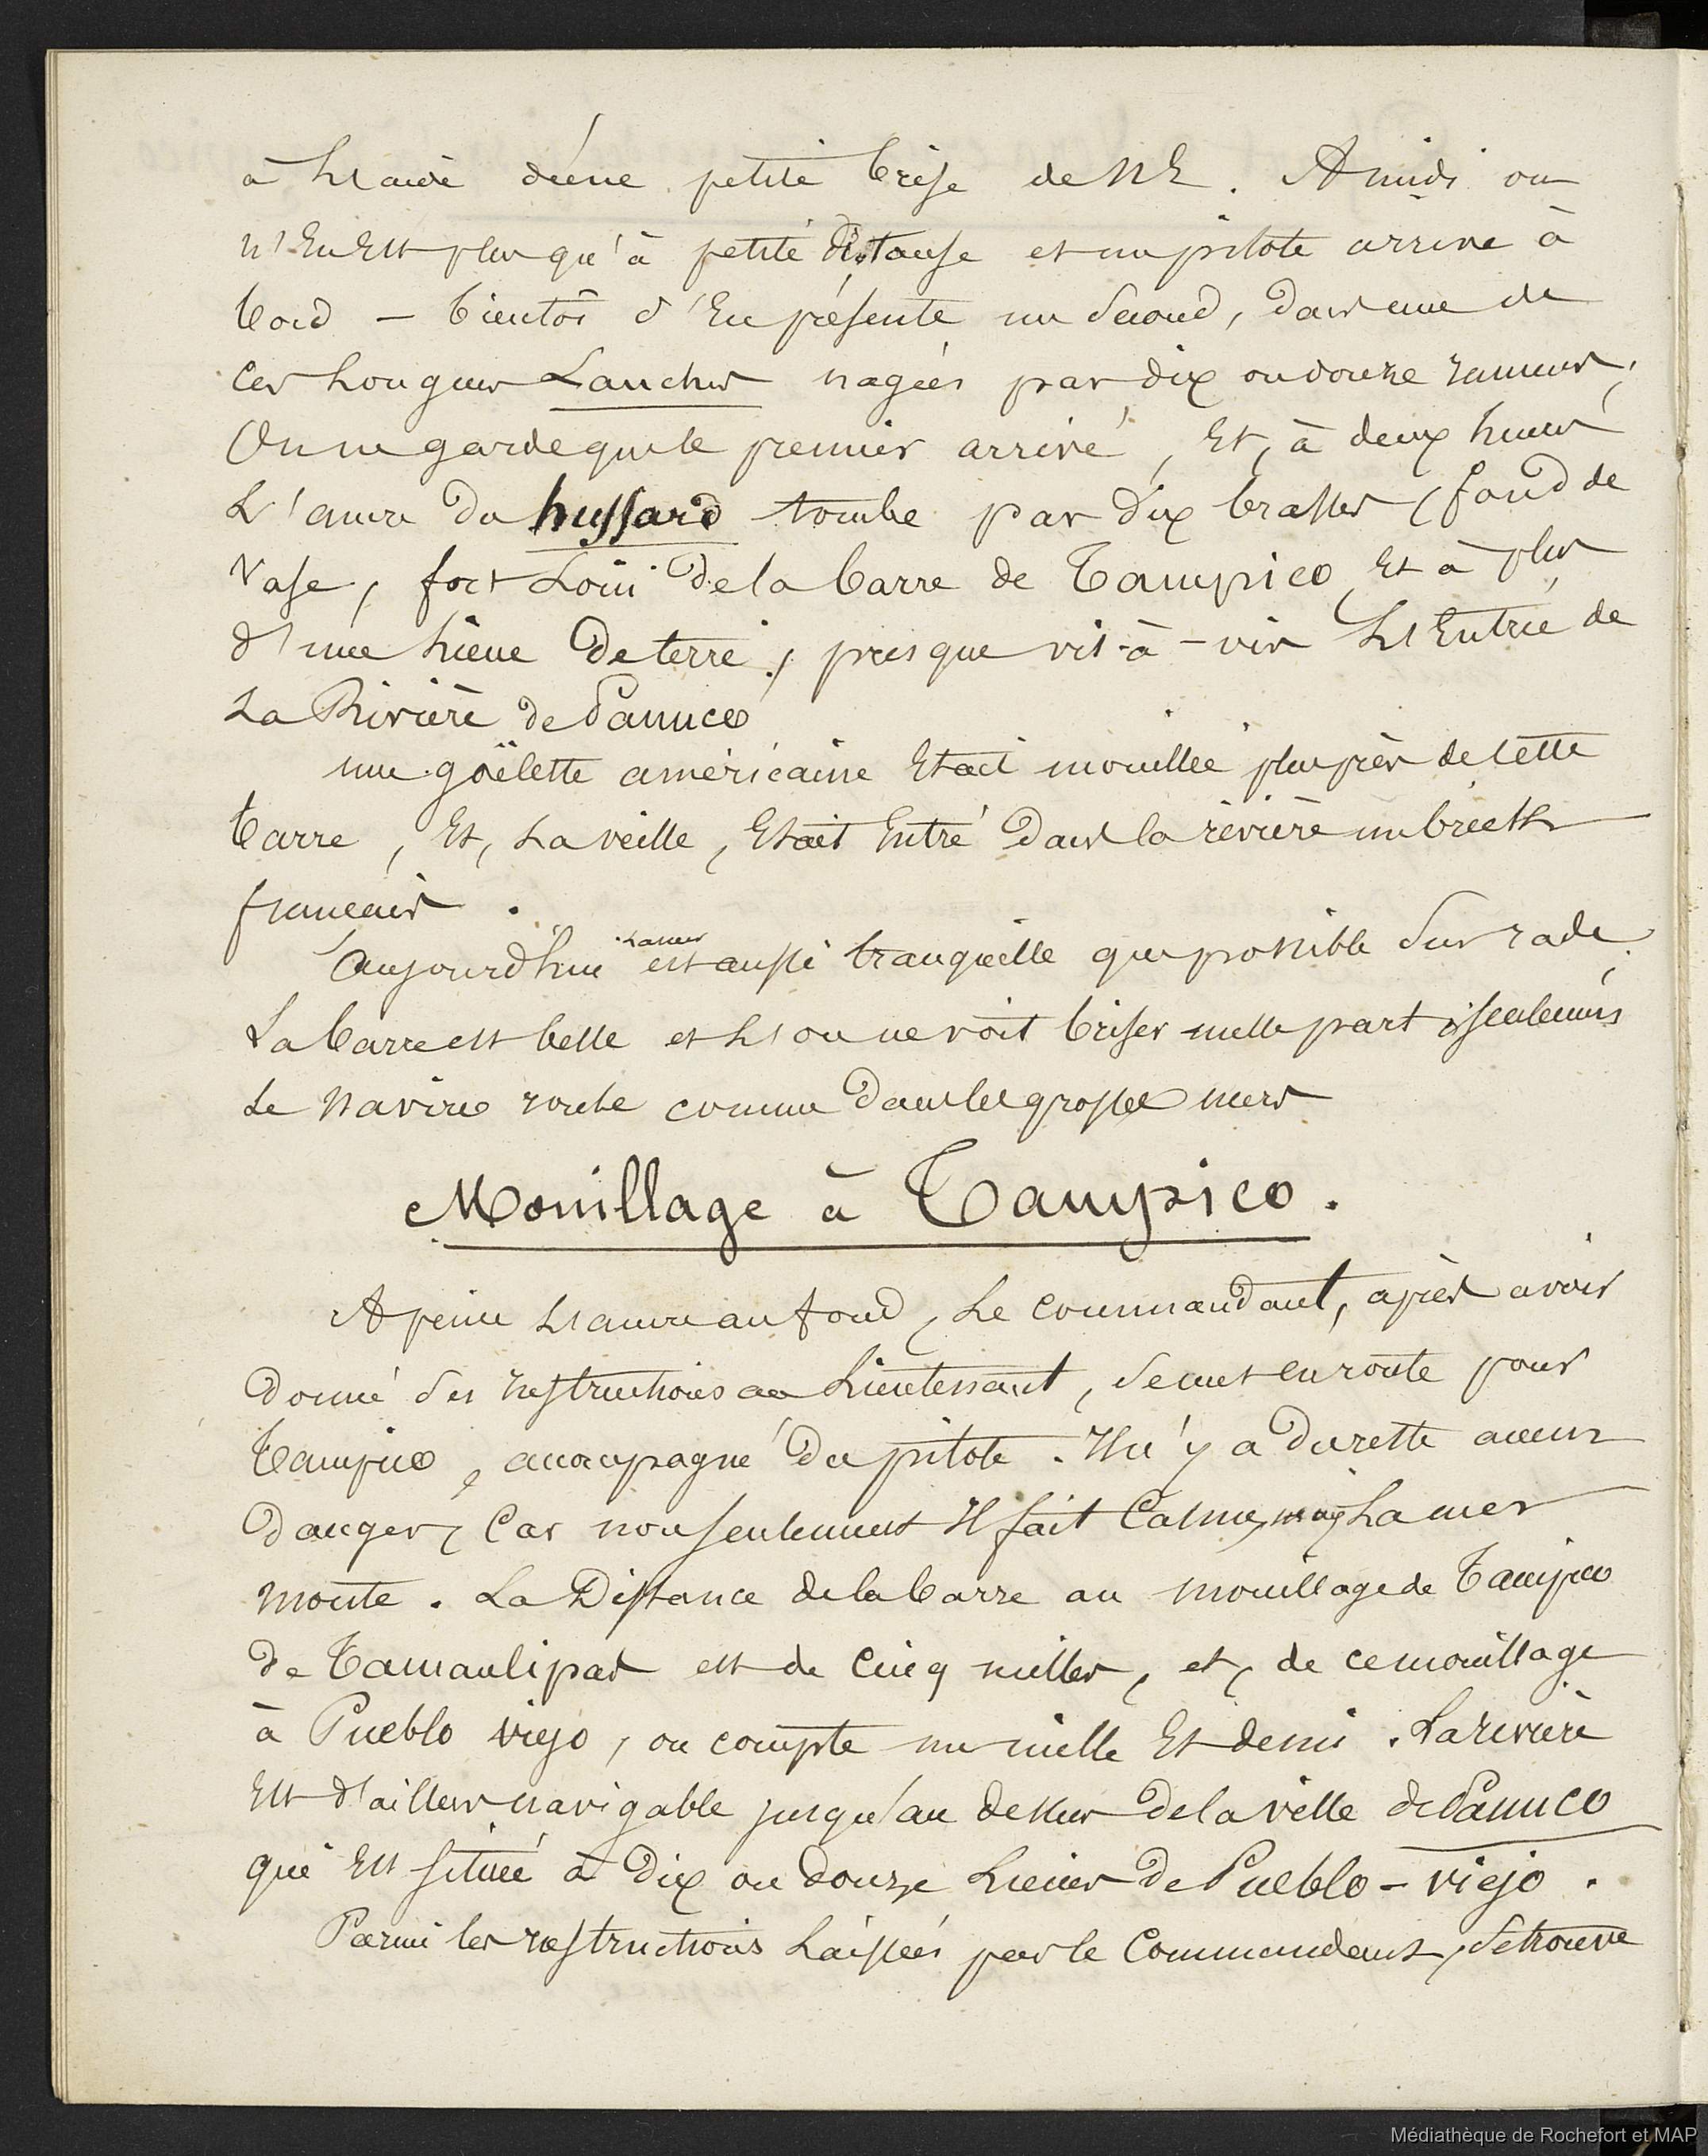 à l'aide d'une petite brise de NE. A midi on
n'en est plus qu'à petite distanse et un pilote arrive à
bord — bientôt s'en présente un second, dans une de
ces longues Lanches nagées par dix ou douze rameurs;
On ne garde que le premier arrivé, Et, à deux heures
L'ancre du hussard tombe par dix brasses (fond de
vase, fort Loin de la barre de Tampico, Et à plus
d'une lieue de terre, presque vis-à-vis L'Entrée de
La Rivière de Panuco
une goëlette américaine Etait mouillée plus près de cette
barre, Et, La veille, Etait Entré dans la rivière un brick
français.
Aujourd'hui La mer est aussi tranquille que possible Sur rade.
La barre est belle et L'on ne voit briser nulle part; seulement
Le Navire roule comme dans les grosses mers
Mouillage à Tampico.
A peine L'ancre au fond, Le Commandant, après avoir
Donné ses instructions au Lieutenant, se met en route pour
Tampico, accompagné du pilote. Il n'y a du reste aucun
Danger, Car non seulement Il fait Calme, mais La mer
monte. La Distance de la barre au mouillage de Tampico
de Tamaulipas est de cinq milles, et, de ce mouillage
à Pueblo viejo, on compte un mille Et demi. La rivière
Est d'ailleurs navigable jusqu'au dessus de la ville de Panuco
qui Est située à Dix ou douze Lieues de Pueblo-viejo.
Parmi les instructions Laissées par le Commandant, se trouve
Médiathèque de Rochefort et MAP